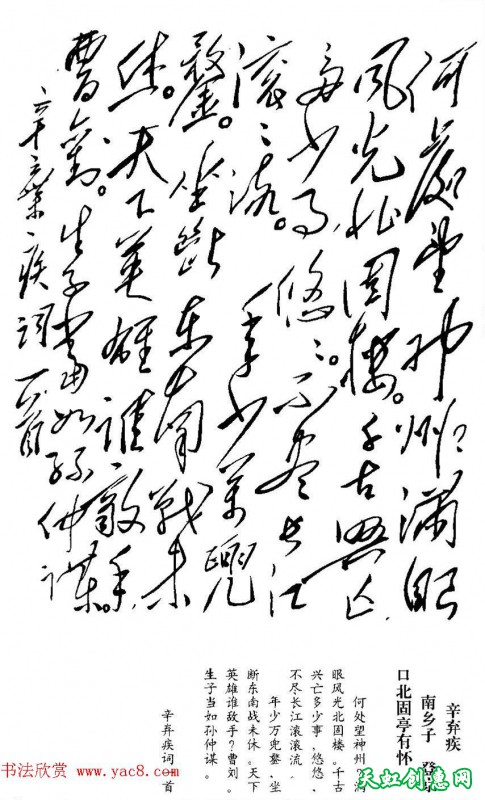 何處望神州滿眼
風光北固樓。千古興亡
多少事悠〻。不盡長江
滾〻流。年少萬兜
鍪。坐斷東南戰未
休。天下英雄誰敵手。
曹劉。生子當如孫仲謀。
辛棄疾词一首
辛弃疾
南乡子 登京
口北固亭有怀
何处望神州
眼风光北固楼。千古
兴亡多少事,悠悠,
不尽长江滚滚流.
年少万兜鍪,坐
断东南战未休。天下
英雄谁敌手?曹刘。
生子当如孙仲谋。
辛弃疾词一首
书法欣赏 www.yac8.com
天虹创意网